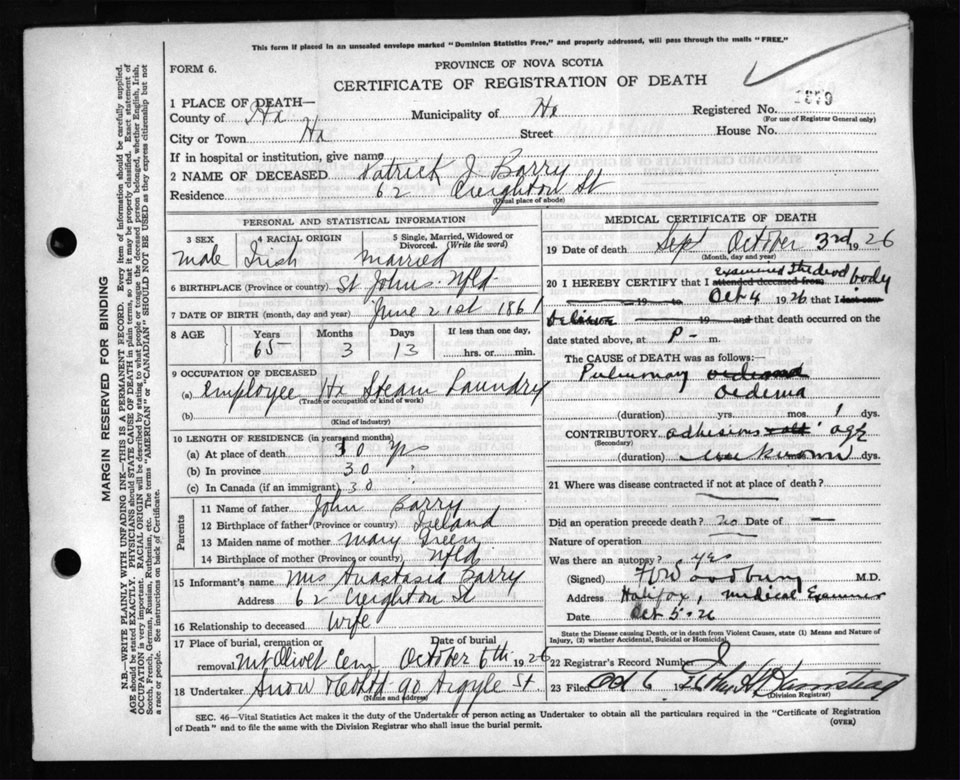 This form if placed in an unsealed envelope marked "Dominion Statistics Free," and properly addressed, will pass through the mails "FREE."
FORM 6.
PROVINCE OF NOVA SCOTIA
CERTIFICATE OF REGISTRATION OF DEATH
1 PLACE OF DEATH—
County of Hx Municipality of Hx Registered No. 1879
(For use of Registrar General only)
City or Town Hx Street House No.
If in hospital or institution, give name
2 NAME OF DECEASED Patrick J. Barry
Residence 62 Creighton St
(Usual place of abode)
PERSONAL AND STATISTICAL INFORMATION
3 SEX 4 RACIAL ORIGIN 5 Single, Married, Widowed or Divorced. (Write the word)
male Irish married
6 BIRTHPLACE (Province or country) St Johns Nfld
7 DATE OF BIRTH (month, day and year) June 21st 1861
8 AGE Years Months Days If less than one day,
65 3 13 hrs. or min.
9 OCCUPATION OF DECEASED
(a) employee Hx Steam Laundry
(Trade or occupation or kind of work)
(b)
(Kind of industry)
10 LENGTH OF RESIDENCE (in years and months)
(a) At place of death 30 yrs
(b) In province 30 "
(c) In Canada (if an immigrant) 30
Parents
11 Name of father John Barry
12 Birthplace of father (Province or country) Ireland
13 Maiden name of mother Mary Green
14 Birthplace of mother (Province or country) Nfld
15 Informant's name Mrs Anastasia Barry
Address 62 Creighton St
16 Relationship to deceased Wife
17 Place of burial, cremation or removal Mt Olivet Cem Date of burial October 6th 1926
18 Undertaker Snow & Co Ltd 90 Argyle St.
(Name and address)
MEDICAL CERTIFICATE OF DEATH
19 Date of death Sept October 3rd 1926
(Month, day and year)
examined the dead body
20 I HEREBY CERTIFY that I attended deceased from
19 to Oct 4 1926 that I last saw
19 and that death occurred on
date stated above, at P- m.
The CAUSE OF DEATH was as follows:
Pulmonary
Oedema
(duration) yrs. mos. 1 dys.
CONTRIBUTORY adhesions age
(Secondary)
(duration) unknown dys.
21 Where was disease contracted if not at place of death?
Did an operation precede death? no Date of —
Nature of operation
Was there an autopsy? yes
(Signed) F W Woodbury M.D.
Address Halifax, Medical Examiner
Date Oct 5-26
State the Disease causing Death, or in death from Violent Causes, state (1) Means and Nature of Injury, (2) whether Accidental, Suicidal or Homicidal.
22 Registrar's Record Number
23 Filed Oct 6 1926
(Division Registrar)
SEC. 46—Vital Statistics Act makes it the duty of the Undertaker or person acting as Undertaker to obtain all the particulars required in the "Certificate of Registration of Death" and to file the same with the Division Registrar who shall issue the burial permit.
(OVER)
MARGIN RESERVED FOR BINDING
N.B.—WRITE PLAINLY WITH UNFADING INK—THIS IS A PERMANENT RECORD. Every item of information should be carefully supplied.
AGE should be stated EXACTLY. PHYSICIANS should STATE CAUSE OF DEATH in plain terms, so that it may be properly classified. Exact statement of
OCCUPATION is very important. RACIAL ORIGIN will be described by stating to what people or tongue the deceased person belonged, whether English, Irish,
Scotch, French, German, Russian, Ruthenian, etc. The terms "AMERICAN" or "CANADIAN" SHOULD NOT BE USED as they express citizenship but not
a race or people. See instructions on back of Certificate.